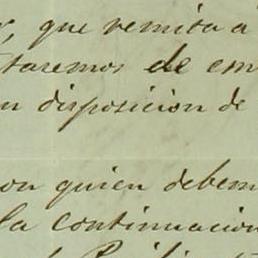 , que remita a
taremos de em
n disposicion de
on quien debem
la continuacion